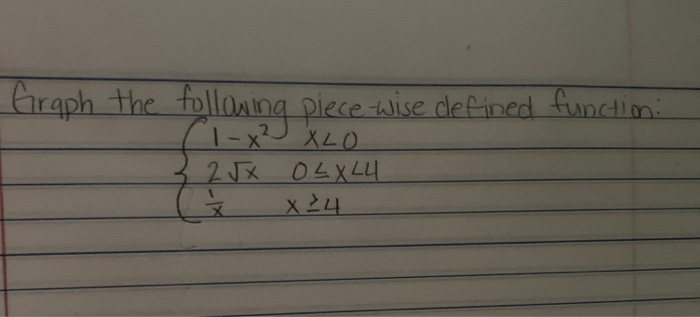 Graph the following piece-wise defined function:
{ 1-x² x<0
2√x 0≤x<4
1/x x≥4